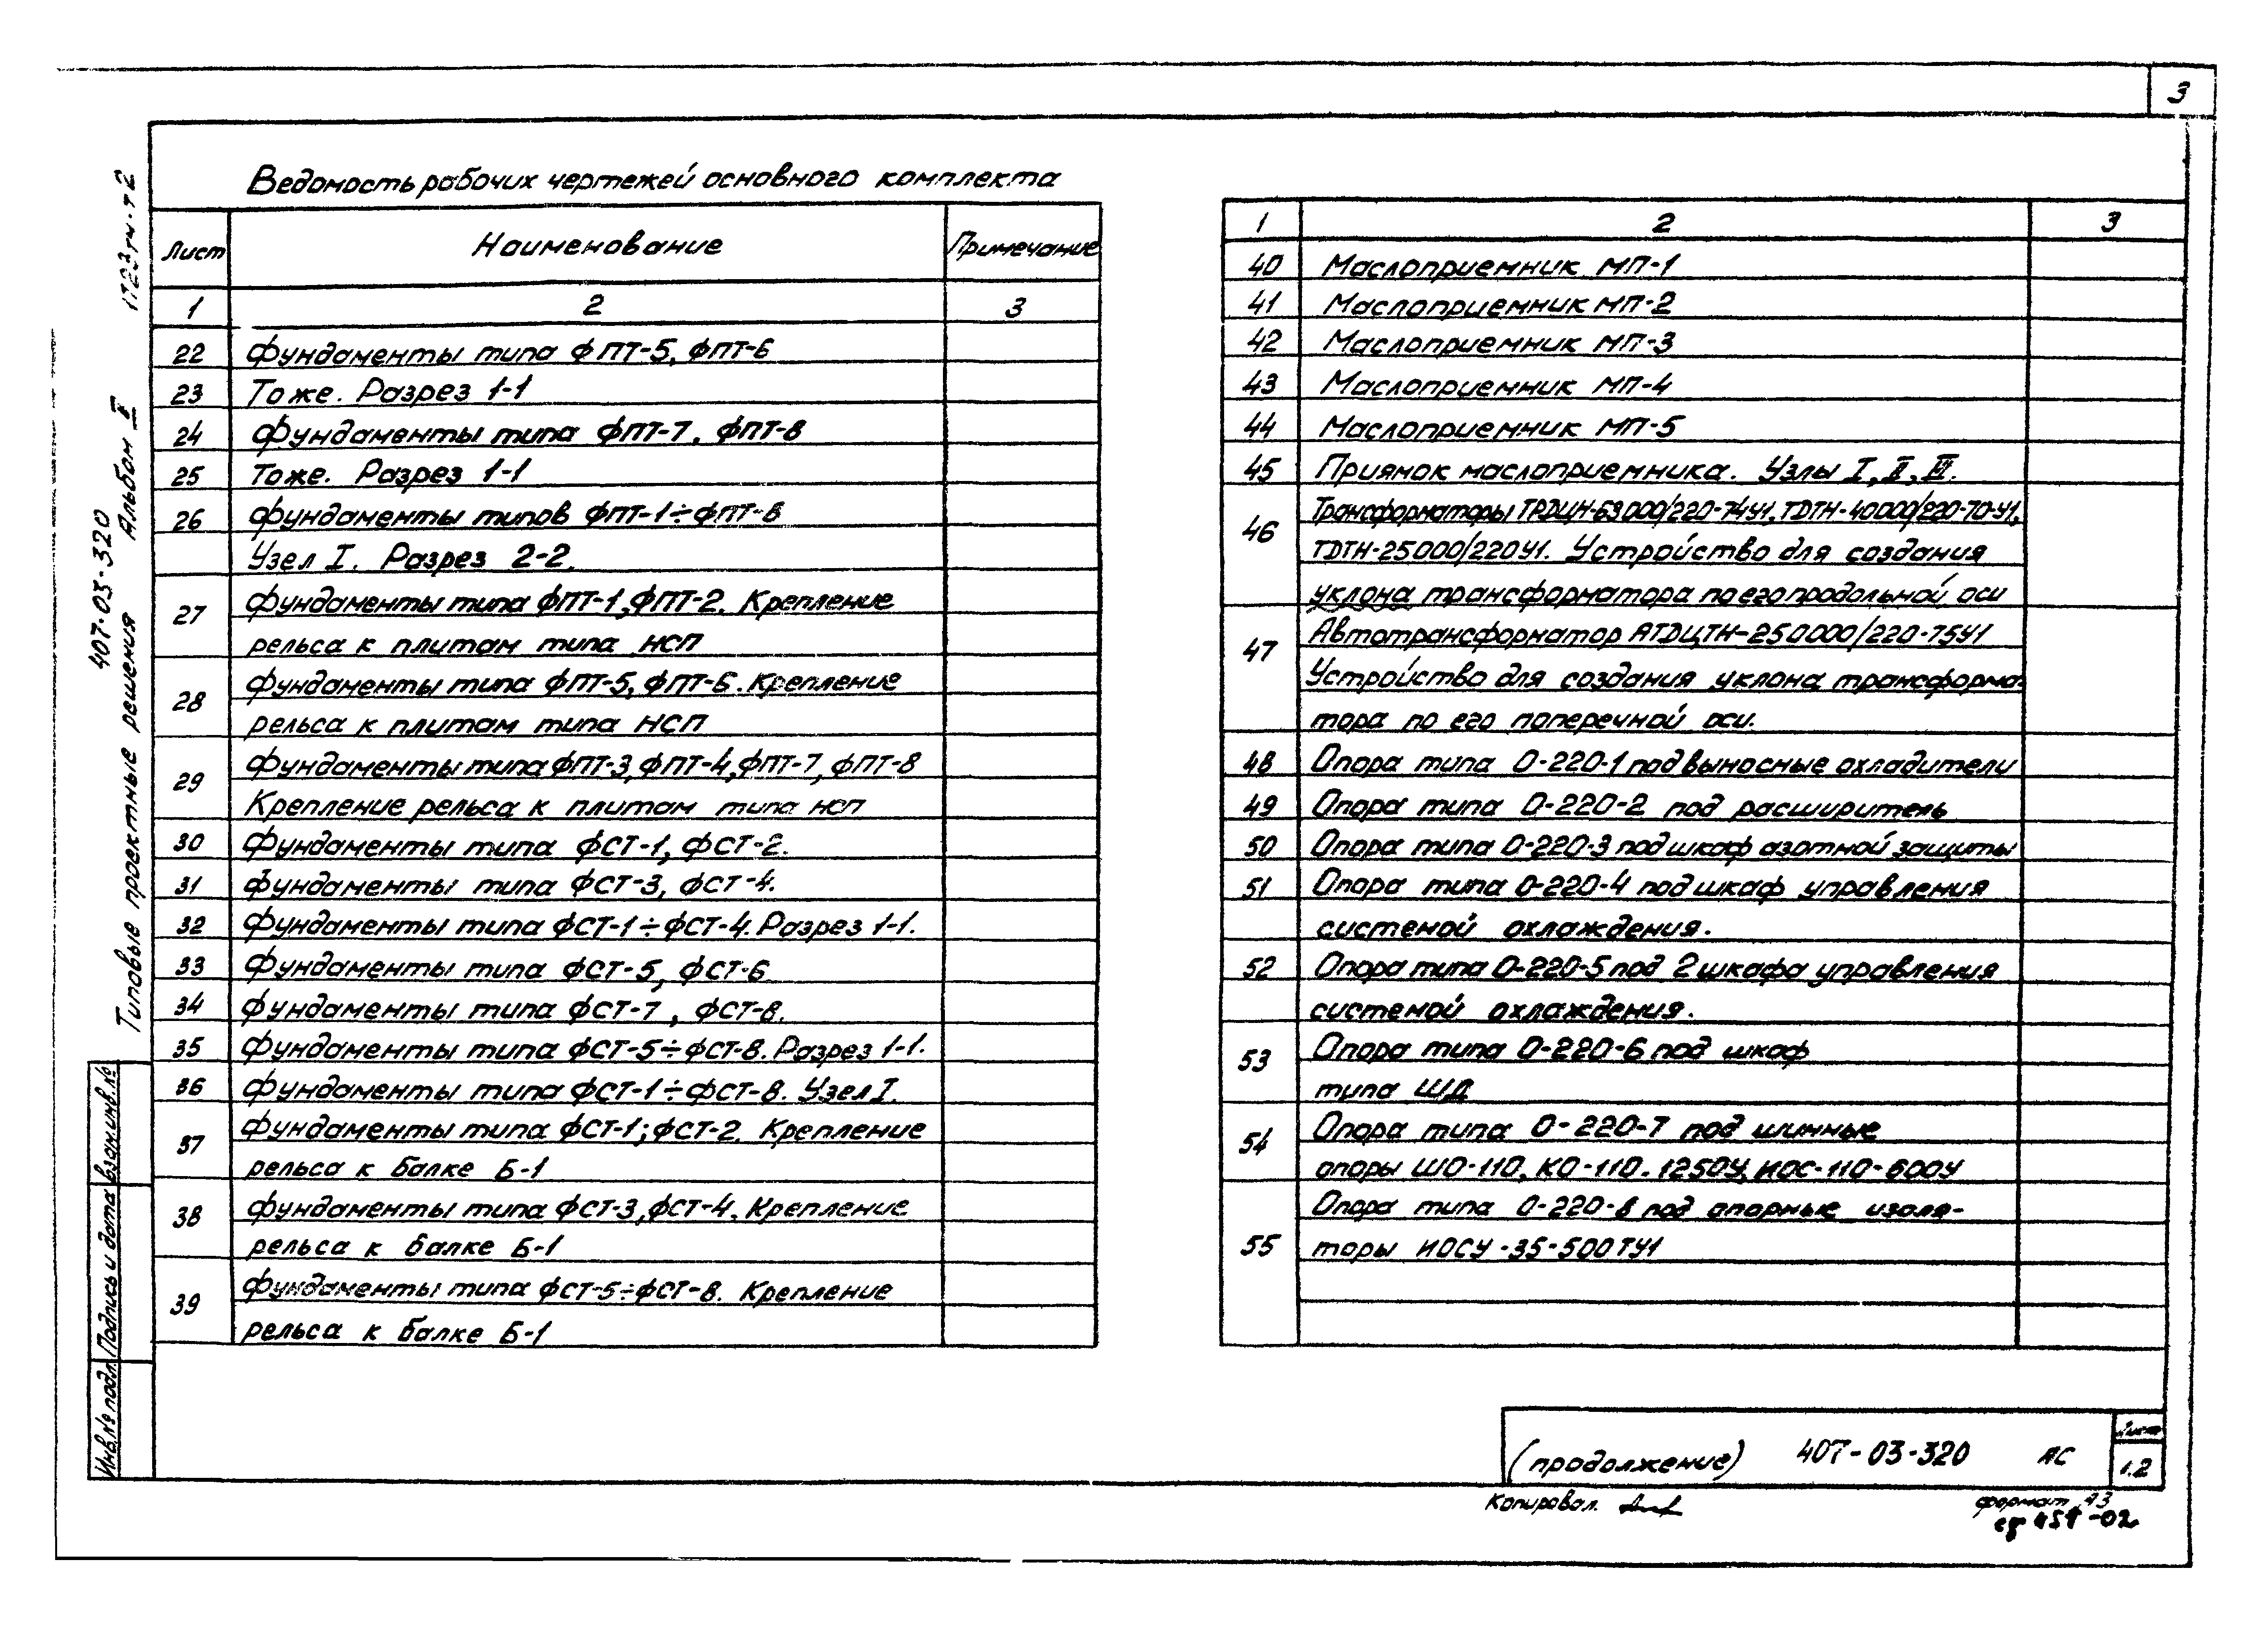 3
Ведомость рабочих чертежей основного комплекта
Лист Наименование Примечание
1 2 3
22 Фундаменты типа ФПТ-5, ФПТ-6
23 То же. Разрез 1-1
24 Фундаменты типа ФПТ-7, ФПТ-8
25 То же. Разрез 1-1
26 Фундаменты типов ФПТ-1÷ФПТ-8
Узел I. Разрез 2-2.
27 Фундаменты типа ФПТ-1, ФПТ-2. Крепление
рельса к плитам типа НСП
28 Фундаменты типа ФПТ-5, ФПТ-6. Крепление
рельса к плитам типа НСП
29 Фундаменты типа ФПТ-3, ФПТ-4, ФПТ-7, ФПТ-8
Крепление рельса к плитам типа НСП
30 Фундаменты типа ФСТ-1, ФСТ-2.
31 Фундаменты типа ФСТ-3, ФСТ-4.
32 Фундаменты типа ФСТ-1÷ФСТ-4. Разрез 1-1.
33 Фундаменты типа ФСТ-5, ФСТ-6
34 Фундаменты типа ФСТ-7, ФСТ-8.
35 Фундаменты типа ФСТ-5÷ФСТ-8. Разрез 1-1.
36 Фундаменты типа ФСТ-1÷ФСТ-8. Узел I.
37 Фундаменты типа ФСТ-1; ФСТ-2. Крепление
рельса к балке Б-1
38 Фундаменты типа ФСТ-3, ФСТ-4. Крепление
рельса к балке Б-1
39 Фундаменты типа ФСТ-5÷ФСТ-8. Крепление
рельса к балке Б-1
1 2 3
40 Маслоприемник МП-1
41 Маслоприемник МП-2
42 Маслоприемник МП-3
43 Маслоприемник МП-4
44 Маслоприемник МП-5
45 Приямок маслоприемника. Узлы I, II, III.
46 Трансформаторы ТРДЦН-63000/220-74У1, ТДТН-40000/220-70-У1,
ТДТН-25000/220У1. Устройство для создания
уклона трансформатора по его продольной оси
47 Автотрансформатор АТДЦТН-250000/220-75У1
Устройство для создания уклона трансформа-
тора по его поперечной оси.
48 Опора типа О-220-1 под выносные охладители
49 Опора типа О-220-2 под расширитель
50 Опора типа О-220-3 под шкаф азотной защиты
51 Опора типа О-220-4 под шкаф управления
системой охлаждения.
52 Опора типа О-220-5 под 2 шкафа управления
системой охлаждения.
53 Опора типа О-220-6 под шкаф
типа ШД
54 Опора типа О-220-7 под шинные
опоры ШО-110, КО-110-1250У, ИОС-110-600У
55 Опора типа О-220-8 под опорные изоля-
торы ИОСУ-35-500ТУ1
(продолжение) 407-03-320 АС
Лист
1.2
Копировал.
формат А3
-02
Типовые проектные решения 407-03-320 Альбом II
Взам.инв.№
Подпись и дата
Инв.№ подл.